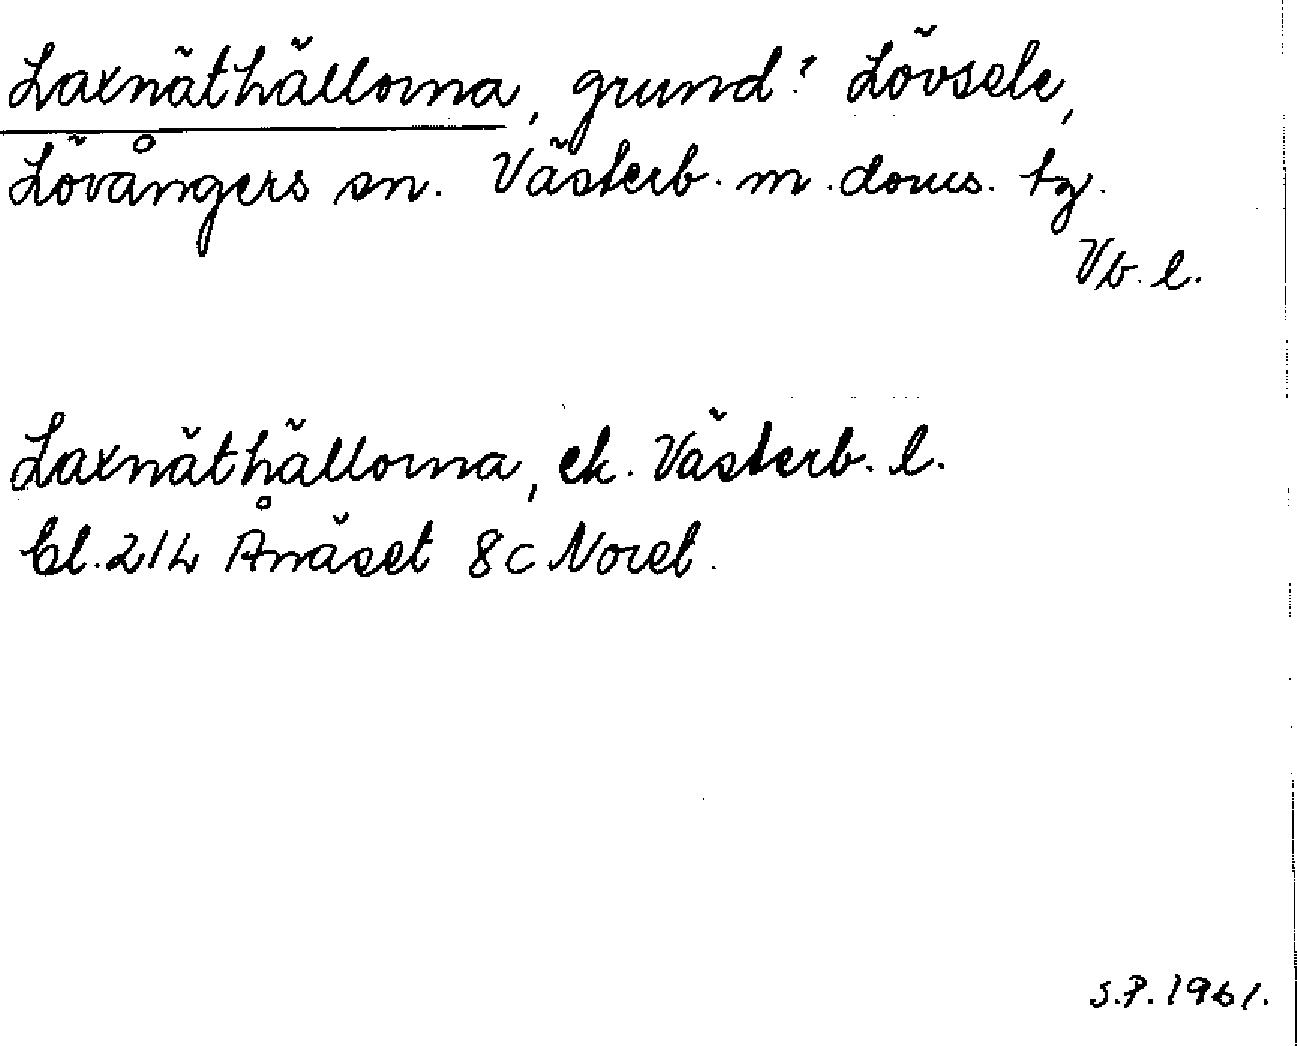 Laxnäthällorna, grund? Lövsele,
Lövångers sn. Västerb. m. doms. tg.
Vb. l.
Laxnäthällorna, ek. Västerb. l.
bl. 214 Ånäset 8c Norel.
S.P. 1961.